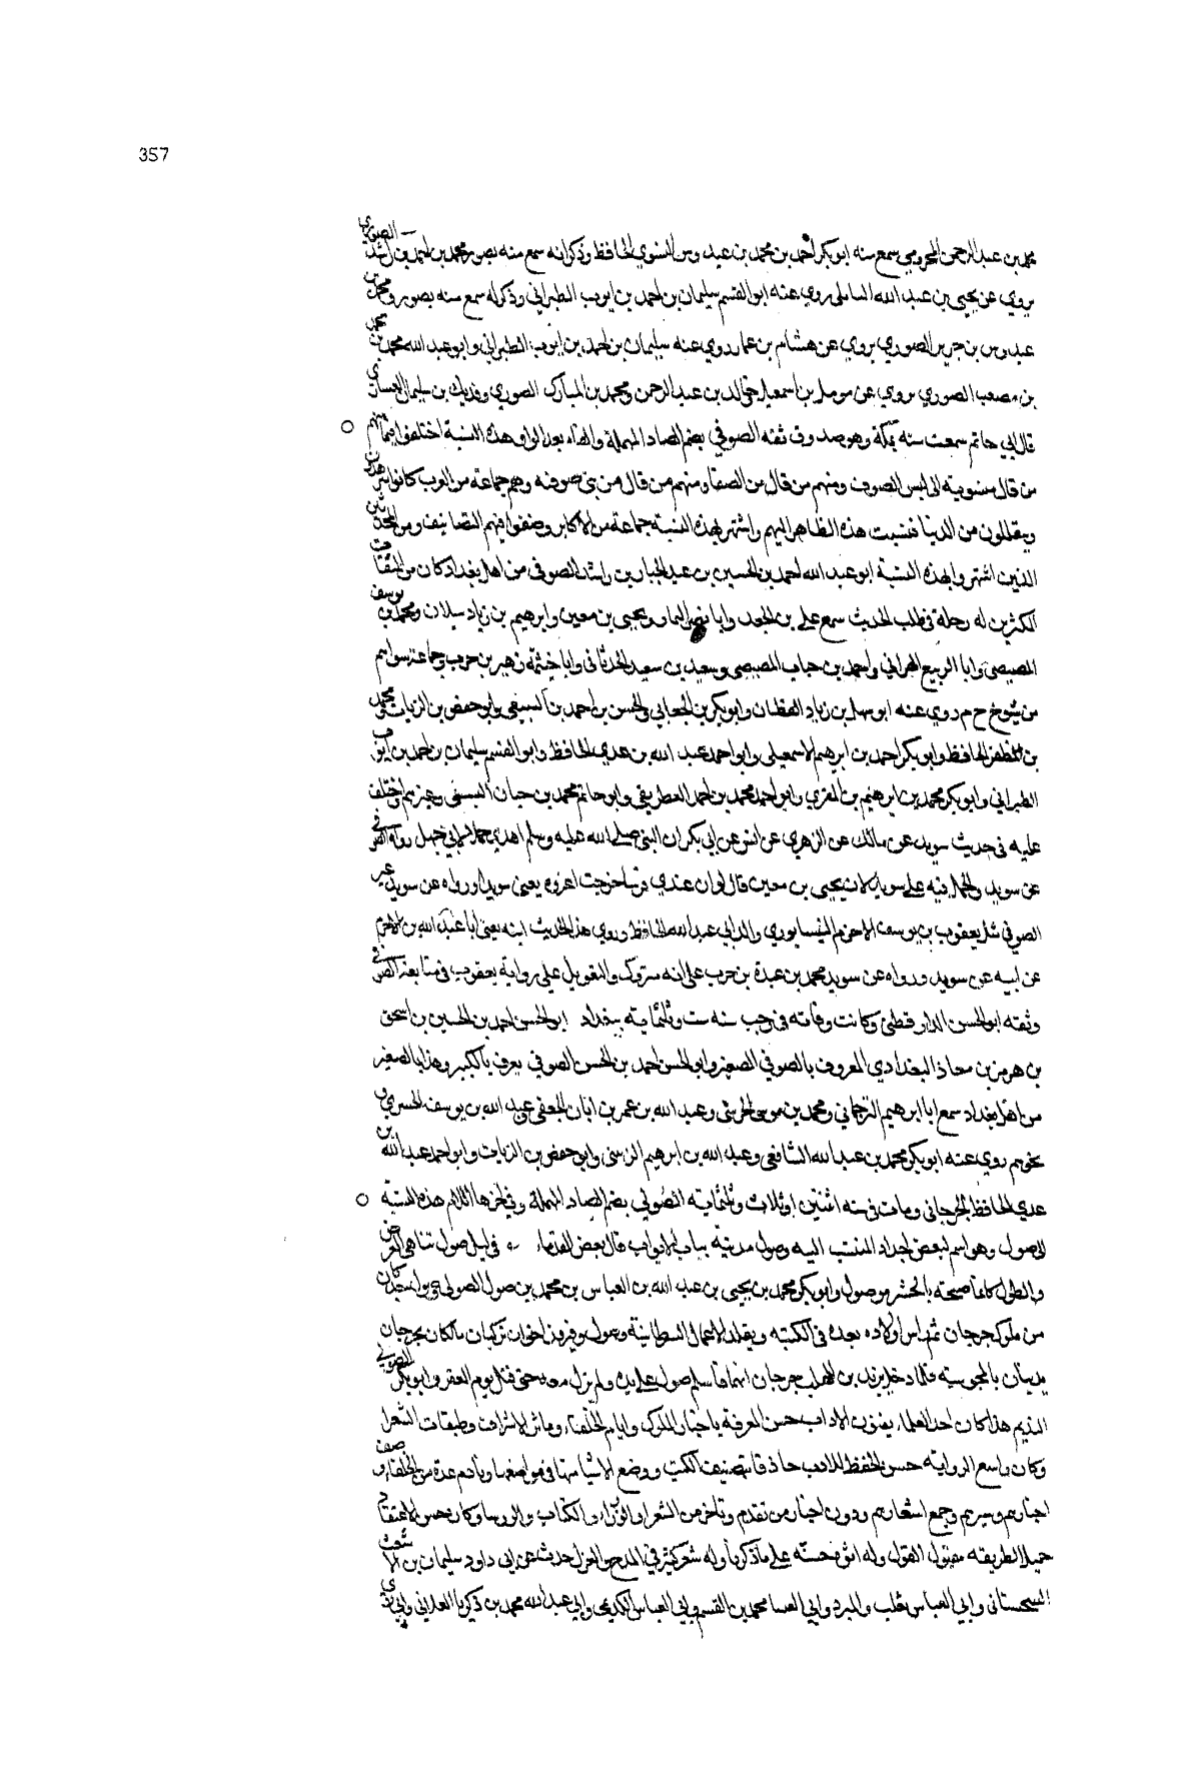 357
محمد بن عبد الرحمن المخرمي سمع منه ابو بكر احمد بن محمد بن عبدوس النسوي الحافظ وذكر انه سمع منه بصور محمد بن احمد بن راشد الصوري
يروي عن يحيى بن عبد الله البابلي روي عنه ابو القسم سليمان بن احمد بن ايوب الطبراني وذكر انه سمع منه بصور ومحمد بن
عبدوس بن جرير الصوري يروي عن هشام بن عمار روي عنه سليمان بن احمد بن ايوب الطبراني وابو عبد الله محمد بن محمد
بن مصعب الصوري يروي عن مومل بن اسمعيل وخالد بن عبد الرحمن ومحمد بن المبارك الصوري وفديك بن سليمان القيساري
قال ابي حاتم سمعت منه بمكة وهو صدوق ثقه الصوفي بضم الصاد المهملة والفاء بعد الواو هذه النسبة اختلفوا فيها فمنهم
من قال منسوبة الى لبس الصوف ومنهم من قال من الصفا ومنهم من قال من بني صوفه وهم جماعة من العرب كانوا يتزهدون
ويتقللون من الدنيا فنسبت هذه الظاهر اليهم واشتهر بهذه النسبة جماعة من الاكابر وصنفوا فيهم التصانيف ومن المحدثين
الذين اشتهروا بهذه النسبة ابو عبد الله احمد بن الحسين بن عبد الجبار بن راشد الصوفي من اهل بغداد كان من الثقات
المكثرين له رحلة في طلب الحديث سمع علي بن الجعد وابا نصر التمار ويحيى بن معين وابرهيم بن زياد سبلان ومحمد بن يوسف
المصيصي وابا الربيع الزهراني واحمد بن جناب المصيصي وسعيد بن سعيد الحدثاني وابا خيثمة زهير بن حرب وجماعة سواهم
من شيوخ خ م روي عنه ابو سهل بن زياد القطان وابو بكر بن الجعابي والحسن بن احمد بن السبيعي وابو حفص بن الزيات ومحمد
بن المظفر الحافظ وابو بكر احمد بن ابرهيم الاسمعيلي وابو احمد عبد الله بن عدي الحافظ وابو القسم سليمان بن احمد بن ايوب
الطبراني وابو بكر محمد بن ابرهيم بن المقري وابو احمد محمد بن احمد الغطريفي وابو حاتم محمد بن حبان البستي وغيرهم واختلف
عليه في حديث سويد عن مالك عن الزهري عن انس عن ابي بكر ان النبي صلى الله عليه وسلم اهدى جملا لابي جهل رواه الصوفي
عن سويد والحمل فيه على سويد لان يحيى بن معين قال لو ان عندي فرسا خرجت اغزوه يعني سويدا ورواه عن سويد غير
الصوفي مثل يعقوب بن يوسف الاخرم النيسابوري والد ابي عبد الله الحافظ وروي هذا الحديث ابنه يعني ابا عبد الله بن الاخرم
عن ابيه عن سويد ورواه عن سويد محمد بن عبدة بن حرب على انه متروك والتعويل على رواية يعقوب في متابعة الصوفي
وثقه ابو الحسن الدارقطني وكانت وفاته في رجب سنه ست وثلثمايه ببغداد ابو الحسن احمد بن الحسين بن اسحق
بن هرمز بن معاذ البغدادي المعروف بالصوفي الصغير وابو الحسن احمد بن الحسن الصوفي يعرف بالكبير وهذا بالصغير
من اهل بغداد سمع ابا ابرهيم الترجماني ومحمد بن موسى الحرشي وعبد الله بن عمر بن ابان الجعفي وعبد الله بن يوسف الجبيري و
نحوهم روي عنه ابو بكر محمد بن عبد الله الشافعي وعبد الله بن ابرهيم الزبيبي وابو حفص بن الزيات وابو احمد عبد الله بن
عدي الحافظ الجرجاني ومات في سنه اثنتين او ثلاث وثلثمايه الصولي بضم الصاد المهملة وفي اخرها اللام هذه النسبة
الى صول وهو اسم لبعض اجداد المنتسب اليه وصول مدينة بباب الابواب قال بعض القدماء في ليل صول تناهى العرض
والطول كانما صبحه بالحشر موصول وابو بكر محمد بن يحيى بن عبد الله بن العباس بن محمد بن صول الصولي وصول جده كان
من ملوك جرجان ثم راس اولاده بعده في الكتبة وتقلد الاعمال السلطانية وصول وفيروز اخوان تركيان ملكان بجرجان
يدينان بالمجوسية فلما دخل يزيد بن المهلب جرجان امنهما فاسلم صول على يده ولم يزل معه حتى قتل يوم العقر وابو بكر الصولي
النديم هذا كان احد العلماء بفنون الاداب حسن المعرفة باخبار الملوك وايام الخلفاء وماثر الاشراف وطبقات الشعرا
وكان واسع الرواية حسن الحفظ للادب حاذقا بتصنيف الكتب ووضع الاشيا منها في مواضعها ونادم عدة من الخلفاء وصنف
اخبارهم وسيرهم وجمع اشعارهم ودون اخبار من تقدم وتاخر من الشعرا والوزراء والكتاب والروسا وكان حسن الاعتقاد
جميل الطريقه مقبول القول وله ابوة حسنة على ما ذكرنا وله شعر كثير في المدح والغزل حدث عن ابي داود سليمان بن الاشعث
السجستاني وابي العباس ثعلب والمبرد وابي العينا محمد بن القسم وابي العباس الكديمي وابي عبد الله محمد بن زكريا الغلابي وابي